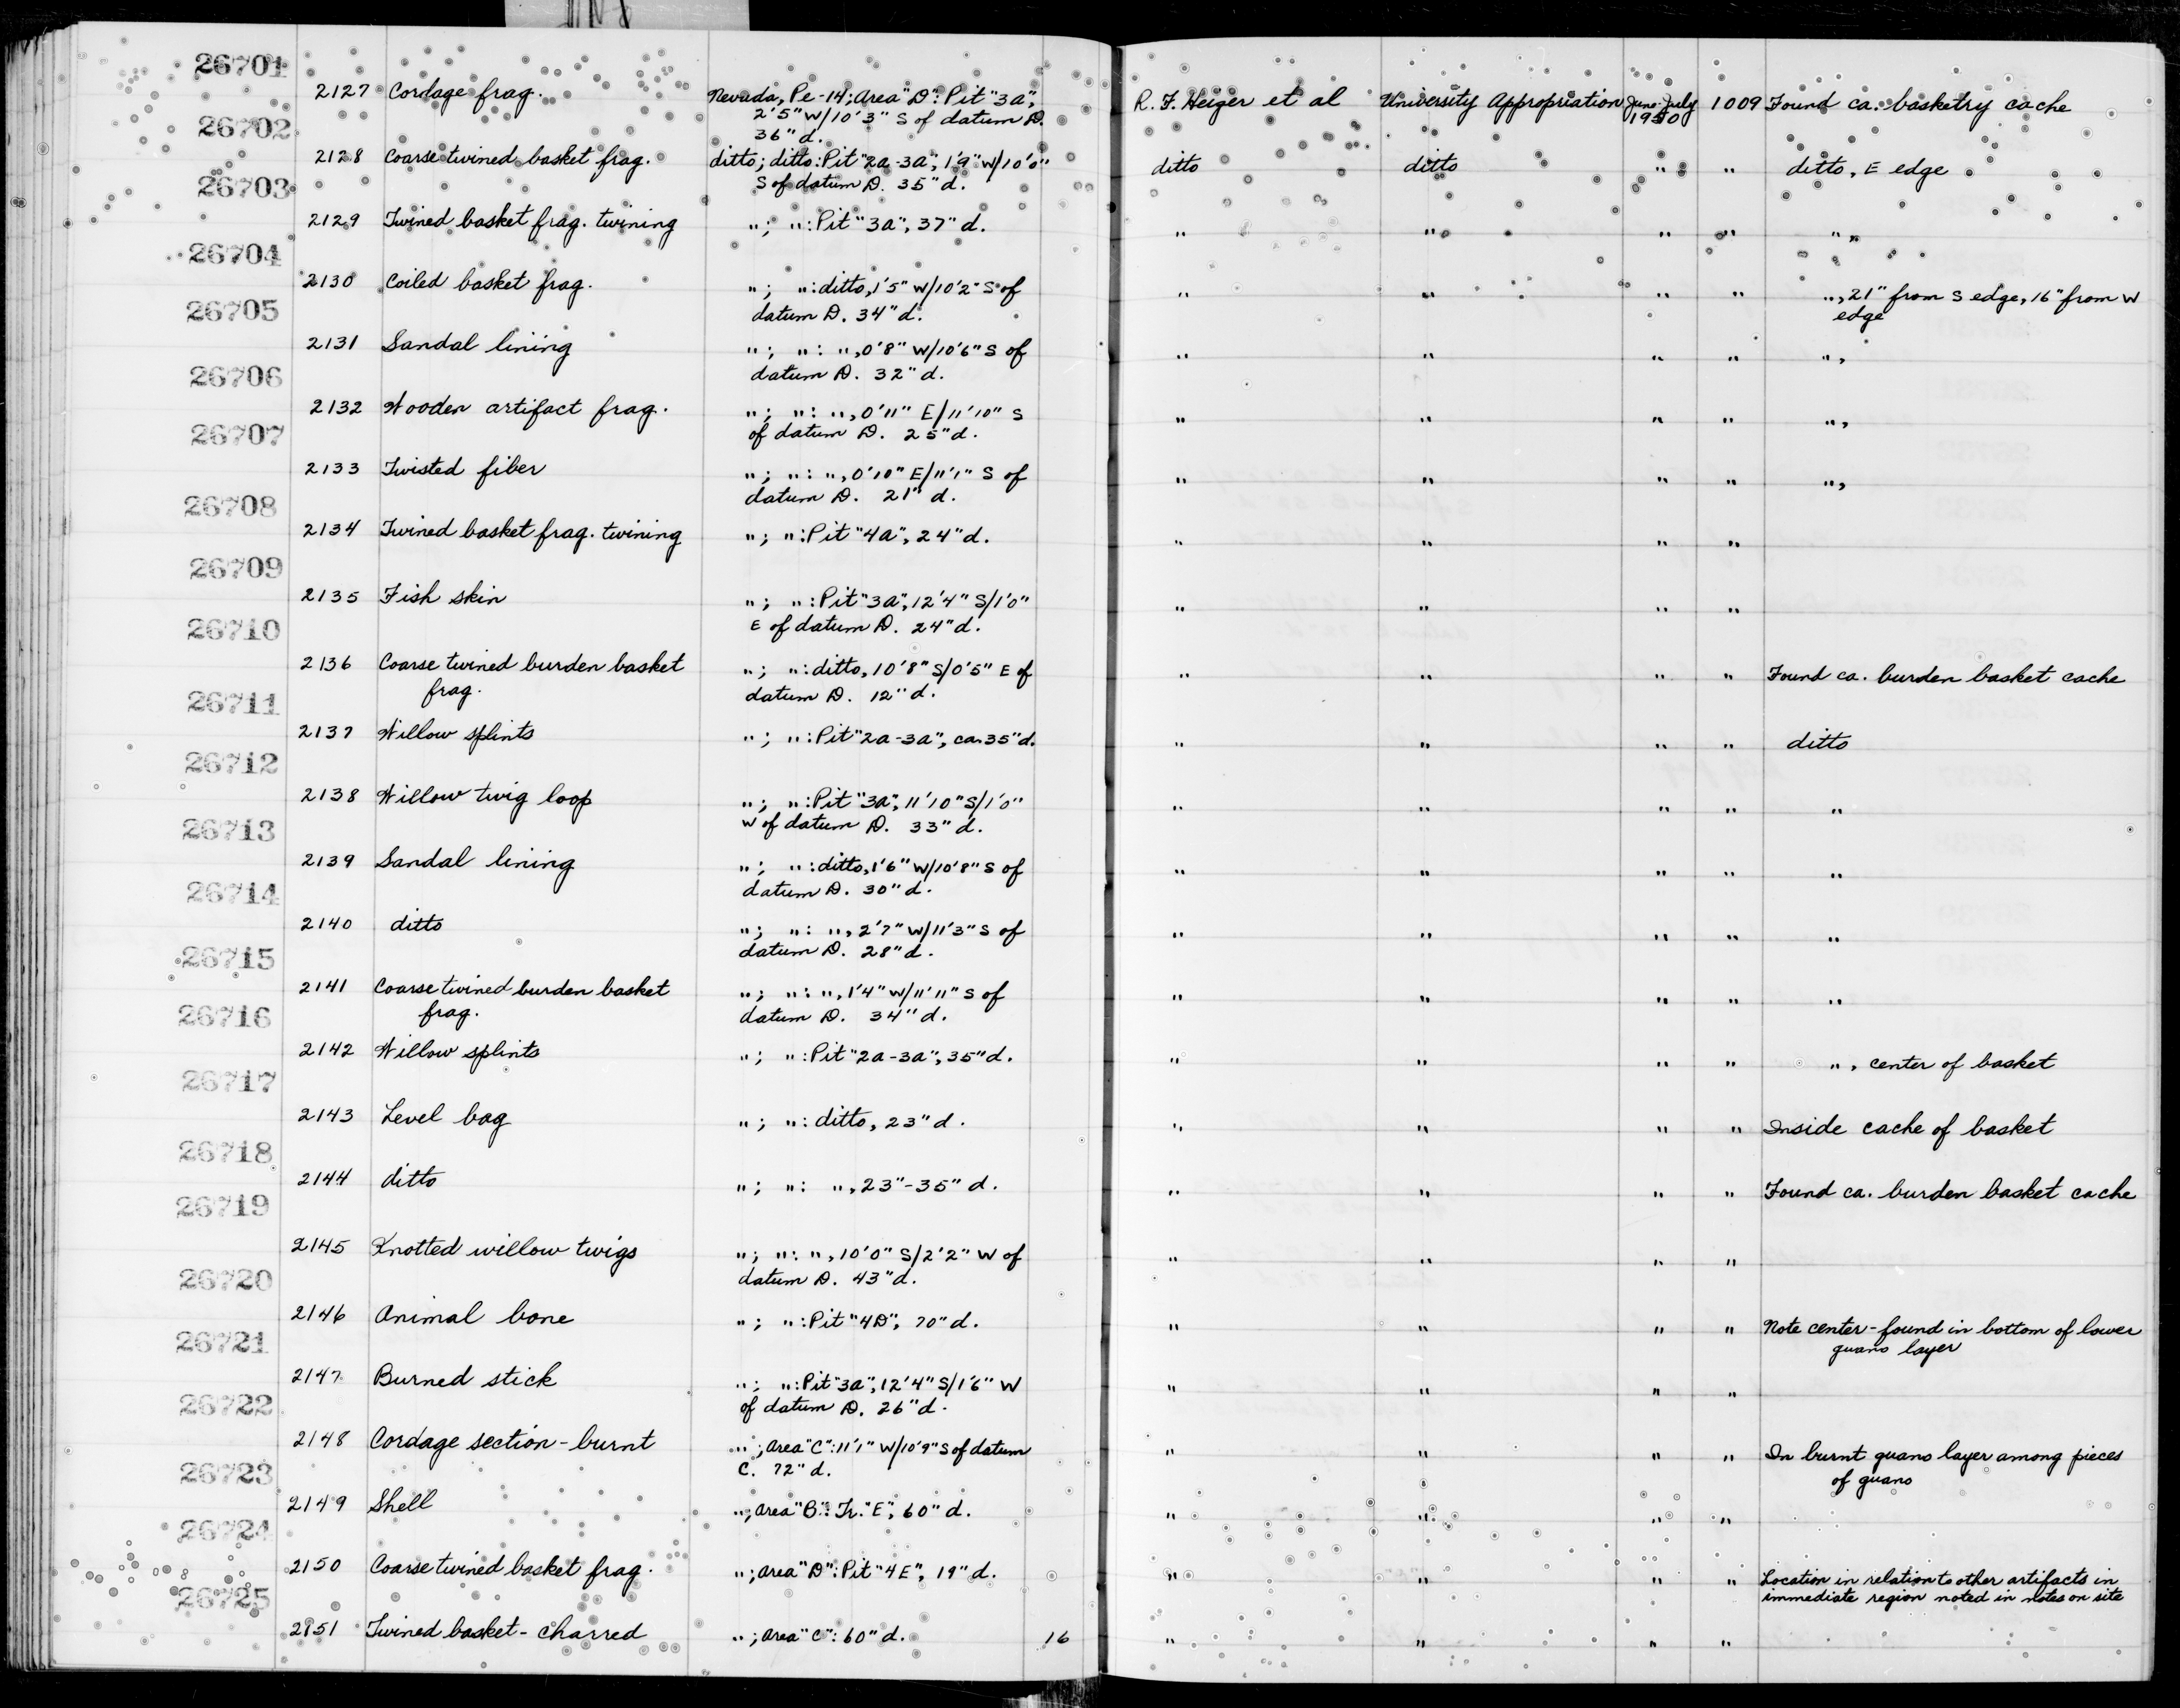 26701
2127 Cordage frag. Nevada, Pe-14; Area "D": Pit "3a", R. F. Heizer et al University Appropriation June-July 1009 Found ca. basketry cache
2'5" W/10'3" S of datum D. 1950
26702
36" d.
2128 Coarse twined basket frag. ditto; ditto: Pit "2a-3a", 1'9" W/10'0" ditto ditto " " ditto, E edge
26703
S of datum D. 35" d.
2129 Twined basket frag. twining "; ": Pit "3a", 37" d. " " " " ",
26704
2130 Coiled basket frag. "; ": ditto, 1'5" W/10'2" S of " " " " ", 21" from S edge, 16" from W
26705
datum D. 34" d. edge
2131 Sandal lining "; ": ", 0'8" W/10'6" S of " " " " ",
26706
datum D. 32" d.
2132 Wooden artifact frag. "; ": ", 0'11" E/11'10" S " " " " ",
26707
of datum D. 25" d.
2133 Twisted fiber "; ": ", 0'10" E/11'1" S of " " " " ",
26708
datum D. 21" d.
2134 Twined basket frag. twining "; ": Pit "4a", 24" d. " " " "
26709
2135 Fish skin "; ": Pit "3a", 12'4" S/1'0" " " " "
26710
E of datum D. 24" d.
2136 Coarse twined burden basket "; ": ditto, 10'8" S/0'5" E of " " " " Found ca. burden basket cache
26711
frag. datum D. 12" d.
2137 Willow splints "; ": Pit "2a-3a", ca. 35" d. " " " " ditto
26712
2138 Willow twig loop "; ": Pit "3a", 11'10" S/1'0" " " " " "
26713
W of datum D. 33" d.
2139 Sandal lining "; ": ditto, 1'6" W/10'8" S of " " " " "
26714
datum D. 30" d.
2140 ditto "; ": ", 2'7" W/11'3" S of " " " " "
26715
datum D. 28" d.
2141 Coarse twined burden basket "; ": ", 1'4" W/11'11" S of " " " " "
26716
frag. datum D. 34" d.
2142 Willow splints "; ": Pit "2a-3a", 35" d. " " " " ", center of basket
26717
2143 Level bag "; ": ditto, 23" d. " " " " Inside cache of basket
26718
2144 ditto "; ": ", 23"-35" d. " " " " Found ca. burden basket cache
26719
2145 Knotted willow twigs "; ": ", 10'0" S/2'2" W of " " " "
26720
datum D. 43" d.
2146 Animal bone "; ": Pit "4D", 70" d. " " " " Note center-found in bottom of lower
26721
guano layer
2147 Burned stick "; ": Pit "3a", 12'4" S/1'6" W " " " "
26722
of datum D. 26" d.
2148 Cordage section-burnt "; Area "C": 11'1" W/10'9" S of datum " " " " In burnt guano layer among pieces
26723
C. 72" d. of guano
2149 Shell "; Area "B": Tr. "E", 60" d. " " " "
26724
2150 Coarse twined basket frag. "; Area "D": Pit "4E", 19" d. " " " " Location in relation to other artifacts in
26725
immediate region noted in notes on site
2151 Twined basket-charred "; Area "C": 60" d. 16 " " " "